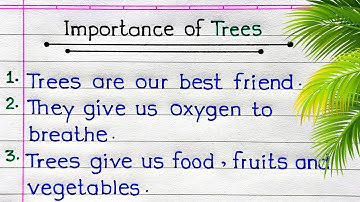 Importance of Trees
1. Trees are our best friend.
2. They give us oxygen to
breathe.
3. Trees give us food, fruits and
vegetables.